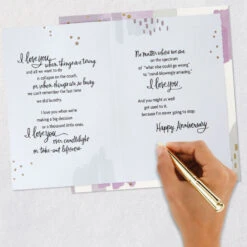 I love you
when things are trying
and all we want to do
is collapse on the couch,
or when things are so busy
we can't remember the last time
we did laundry.
I love you when we're
making a big decision
or a thousand little ones.
I love you
over candlelight
or take-out leftovers.
No matter where we are
on the spectrum
of "what else could go wrong"
to "mind-blowingly amazing,"
I love you.
And you might as well
get used to it,
because I'm never going to stop.
Happy Anniversary